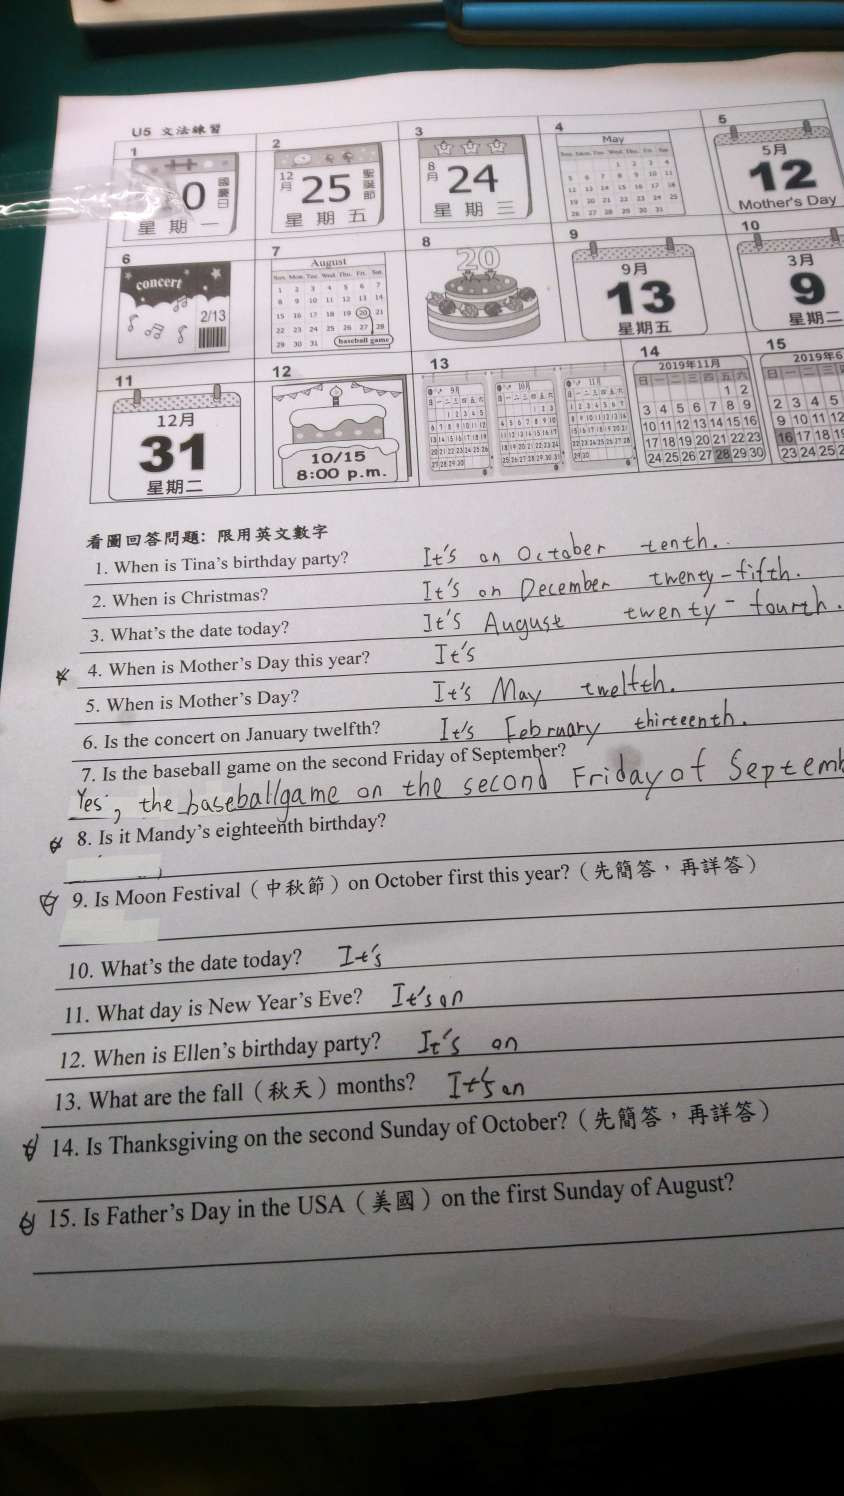 U5 文法練習
1 2 3 4 5
0 國慶日 星期一
12月 25 聖誕節 星期五
8月 24 星期三
May
Sun. Mon. Tue. Wed. Thu. Fri. Sat.
1 2 3 4
5 6 7 8 9 10 11
12 13 14 15 16 17 18
19 20 21 22 23 24 25
26 27 28 29 30 31
5月 12 Mother's Day
6 7 8 9 10
concert 2/13
August
Sun. Mon. Tue. Wed. Thu. Fri. Sat.
1 2 3 4 5 6 7
8 9 10 11 12 13 14
15 16 17 18 19 20 21
22 23 24 25 26 27 28
29 30 31 baseball game
20
9月 13 星期五
3月 9 星期二
11 12 13 14 15
12月 31 星期二
10/15
8:00 p.m.
9月
日一二三四五六
1 2 3 4 5
6 7 8 9 10 11 12
13 14 15 16 17 18 19
20 21 22 23 24 25 26
27 28 29 30
10月
日一二三四五六
1 2 3
4 5 6 7 8 9 10
11 12 13 14 15 16 17
18 19 20 21 22 23 24
25 26 27 28 29 30 31
11月
日一二三四五六
1 2 3 4 5 6 7
8 9 10 11 12 13 14
15 16 17 18 19 20 21
22 23 24 25 26 27 28
29 30
2019年11月
日一二三四五六
1 2
3 4 5 6 7 8 9
10 11 12 13 14 15 16
17 18 19 20 21 22 23
24 25 26 27 28 29 30
2019年6
日一二三四
2 3 4 5
9 10 11 12
16 17 18 19
23 24 25 2
看圖回答問題: 限用英文數字
1. When is Tina's birthday party? It's on October tenth.
2. When is Christmas? It's on December twenty-fifth.
3. What's the date today? It's August twenty-fourth.
4. When is Mother's Day this year? It's
5. When is Mother's Day? It's May twelfth.
6. Is the concert on January twelfth? It's February thirteenth.
7. Is the baseball game on the second Friday of September?
Yes, the baseballgame on the second Friday of Septemb
8. Is it Mandy's eighteenth birthday?
9. Is Moon Festival（中秋節）on October first this year?（先簡答，再詳答）
10. What's the date today? It's
11. What day is New Year's Eve? It's on
12. When is Ellen's birthday party? It's on
13. What are the fall（秋天）months? It's on
14. Is Thanksgiving on the second Sunday of October?（先簡答，再詳答）
15. Is Father's Day in the USA（美國）on the first Sunday of August?